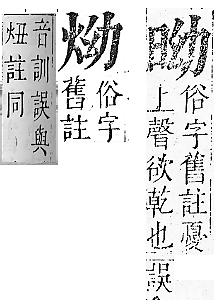 俗字舊註憂
上聲欲乾也誤
俗字
舊註
音訓誤與
炄註同